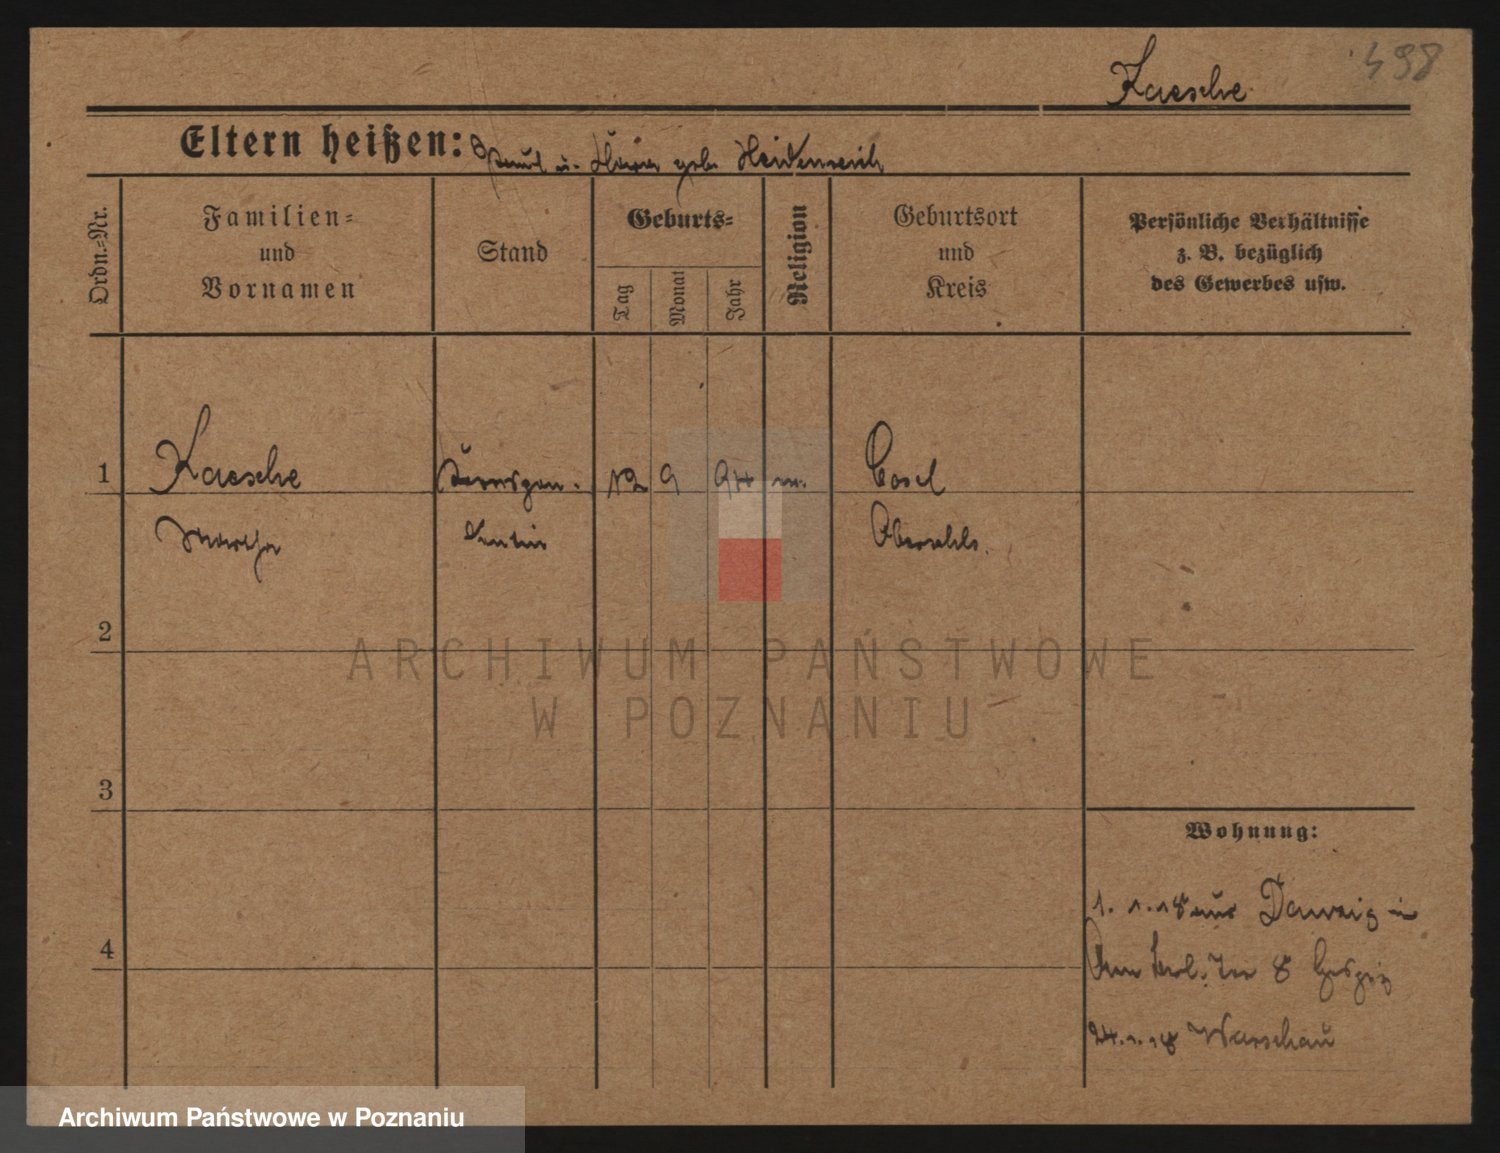 498
Kaesche
Eltern heißen: Paul u. Maria geb. Heidenreich
Ordn.=Nr.
Familien=
und
Vornamen
Stand
Geburts=
Tag
Monat
Jahr
Religion
Geburtsort
und
Kreis
Persönliche Verhältnisse
z. B. bezüglich
des Gewerbes usw.
1 Kaesche 12 9 94 Cosel
Martha Oberschls.
2
3
4
Wohnung:
1. 1. 18 aus Danzig in
8 Hospiz
24. 1. 18 Warschau
ARCHIWUM PAŃSTWOWE
W POZNANIU
Archiwum Państwowe w Poznaniu